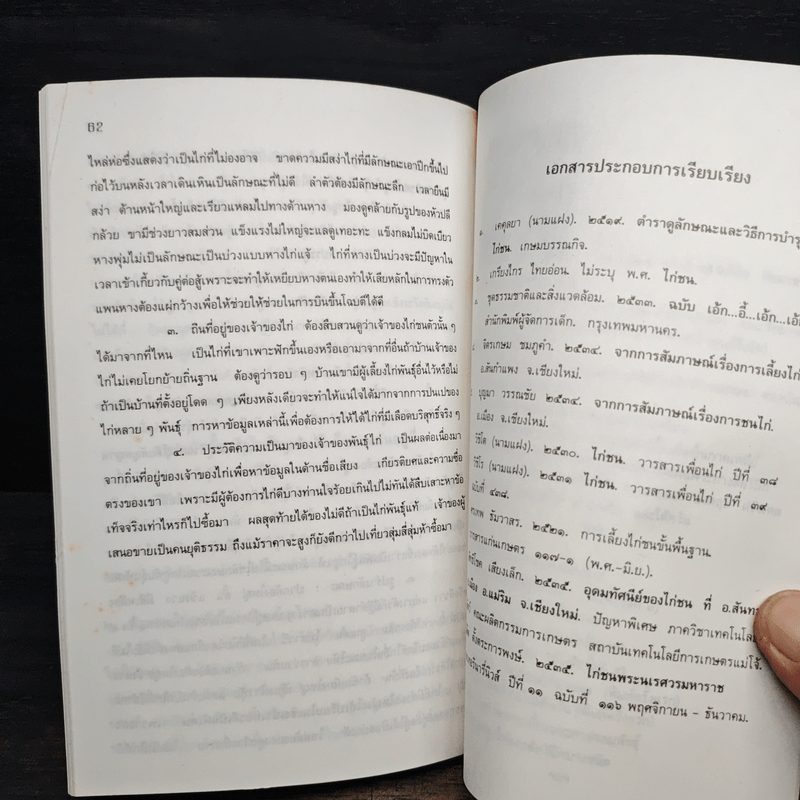 62
ไหล่ห่อซึ่งแสดงว่าเป็นไก่ที่ไม่องอาจ ขาดความมีสง่าไก่ที่มีลักษณะเอาปีกขึ้นไป
ก่อไว้บนหลังเวลาเดินเหินเป็นลักษณะที่ไม่ดี ลำตัวต้องมีลักษณะลึก เวลายืนมี
สง่า ด้านหน้าใหญ่และเรียวแหลมไปทางด้านหาง มองดูคล้ายกับรูปของหัวปลี
กล้วย ขามีช่วงยาวสมส่วน แข้งแรงไม่ใหญ่จะแลดูเทอะทะ แข้งกลมไม่บิดเบี้ยว
หางพุ่มไม่เป็นลักษณะเป็นบ่วงแบบหางไก่แจ้ ไก่ที่หางเป็นบ่วงจะมีปัญหาใน
เวลาเข้าเกี้ยวกับคู่ต่อสู้เพราะจะทำให้เหยียบหางตนเองทำให้เสียหลักในการทรงตัว
แพนหางต้องแผ่กว้างเพื่อให้ช่วยให้ช่วยในการบินขึ้นโฉบตีได้ดี
๓. ถิ่นที่อยู่ของเจ้าของไก่ ต้องสืบสวนดูว่าเจ้าของไก่ชนตัวนั้น ๆ
ได้มาจากที่ไหน เป็นไก่ที่เขาเพาะฟักขึ้นเองหรือเอามาจากที่อื่นถ้าบ้านเจ้าของ
ไก่ไม่เคยโยกย้ายถิ่นฐาน ต้องดูว่ารอบ ๆ บ้านเขามีผู้เลี้ยงไก่พันธุ์อื่นไว้หรือไม่
ถ้าเป็นบ้านที่ตั้งอยู่โดด ๆ เพียงหลังเดียวจะทำให้แน่ใจได้มากจากการปนเปของ
ไก่หลาย ๆ พันธุ์ การหาข้อมูลเหล่านี้เพื่อต้องการให้ได้ไก่ที่มีเลือดบริสุทธิ์จริง ๆ
๔. ประวัติความเป็นมาของเจ้าของพันธุ์ไก่ เป็นผลต่อเนื่องมา
จากถิ่นที่อยู่ของเจ้าของไก่เพื่อหาข้อมูลในด้านชื่อเสียง เกียรติยศและความซื่อ
ตรงของเขา เพราะมีผู้ต้องการไก่ดีบางท่านใจร้อยเกินไปไม่ทันได้สืบเสาะหาข้อ
เท็จจริงเท่าไหร่ก็ไปซื้อมา ผลสุดท้ายได้ของไม่ดีถ้าเป็นไก่พันธุ์แท้ เจ้าของผู้
เสนอขายเป็นคนยุติธรรม ถึงแม้ราคาจะสูงก็ยังดีกว่าไปเที่ยวสุ่มสี่สุ่มห้าซื้อมา
เอกสารประกอบการเรียบเรียง
เคคุลยา (นามแฝง). ๒๕๑๙. ตำราดูลักษณะและวิธีการบำรุ
ไก่ชน. เกษมบรรณกิจ.
เกรียงไกร ไทยอ่อน. ไม่ระบุ พ.ศ. ไก่ชน.
ชุดธรรมชาติและสิ่งแวดล้อม. ๒๕๓๓. ฉบับ เอ้ก...อี้...เอ้ก...เอ้
สำนักพิมพ์ผู้จัดการเด็ก. กรุงเทพมหานคร.
ฉัตรเกษม ชมภูคำ. ๒๕๓๔. จากการสัมภาษณ์เรื่องการเลี้ยงไก่
อ.สันกำแพง จ.เชียงใหม่.
บุญมา วรรณชัย ๒๕๓๔. จากการสัมภาษณ์เรื่องการชนไก่.
อ.เมือง จ.เชียงใหม่.
(นามแฝง). ๒๕๓๐. ไก่ชน. วารสารเพื่อนไก่ ปีที่ ๓๘
(นามแฝง). ๒๕๓๑ ไก่ชน. วารสารเพื่อนไก่ ปีที่ ๓๙
ฉบับที่ ๔๓๘.
ธัมวาสร. ๒๕๒๑. การเลี้ยงไก่ชนขั้นพื้นฐาน.
วารสารแก่นเกษตร ๑๑๗-๑ (พ.ศ.-มิ.ย.).
เสียงเล็ก. ๒๕๓๕. อุดมทัศนีย์ของไก่ชน ที่ อ.สันท
อ.แม่ริม จ.เชียงใหม่. ปัญหาพิเศษ ภาควิชาเทคโนโล
คณะผลิตกรรมการเกษตร สถาบันเทคโนโลยีการเกษตรแม่โจ้.
ตั้งตระการพงษ์. ๒๕๓๕. ไก่ชนพระนเรศวรมหาราช
ปีที่ ๑๑ ฉบับที่ ๑๑๖ พฤศจิกายน - ธันวาคม.